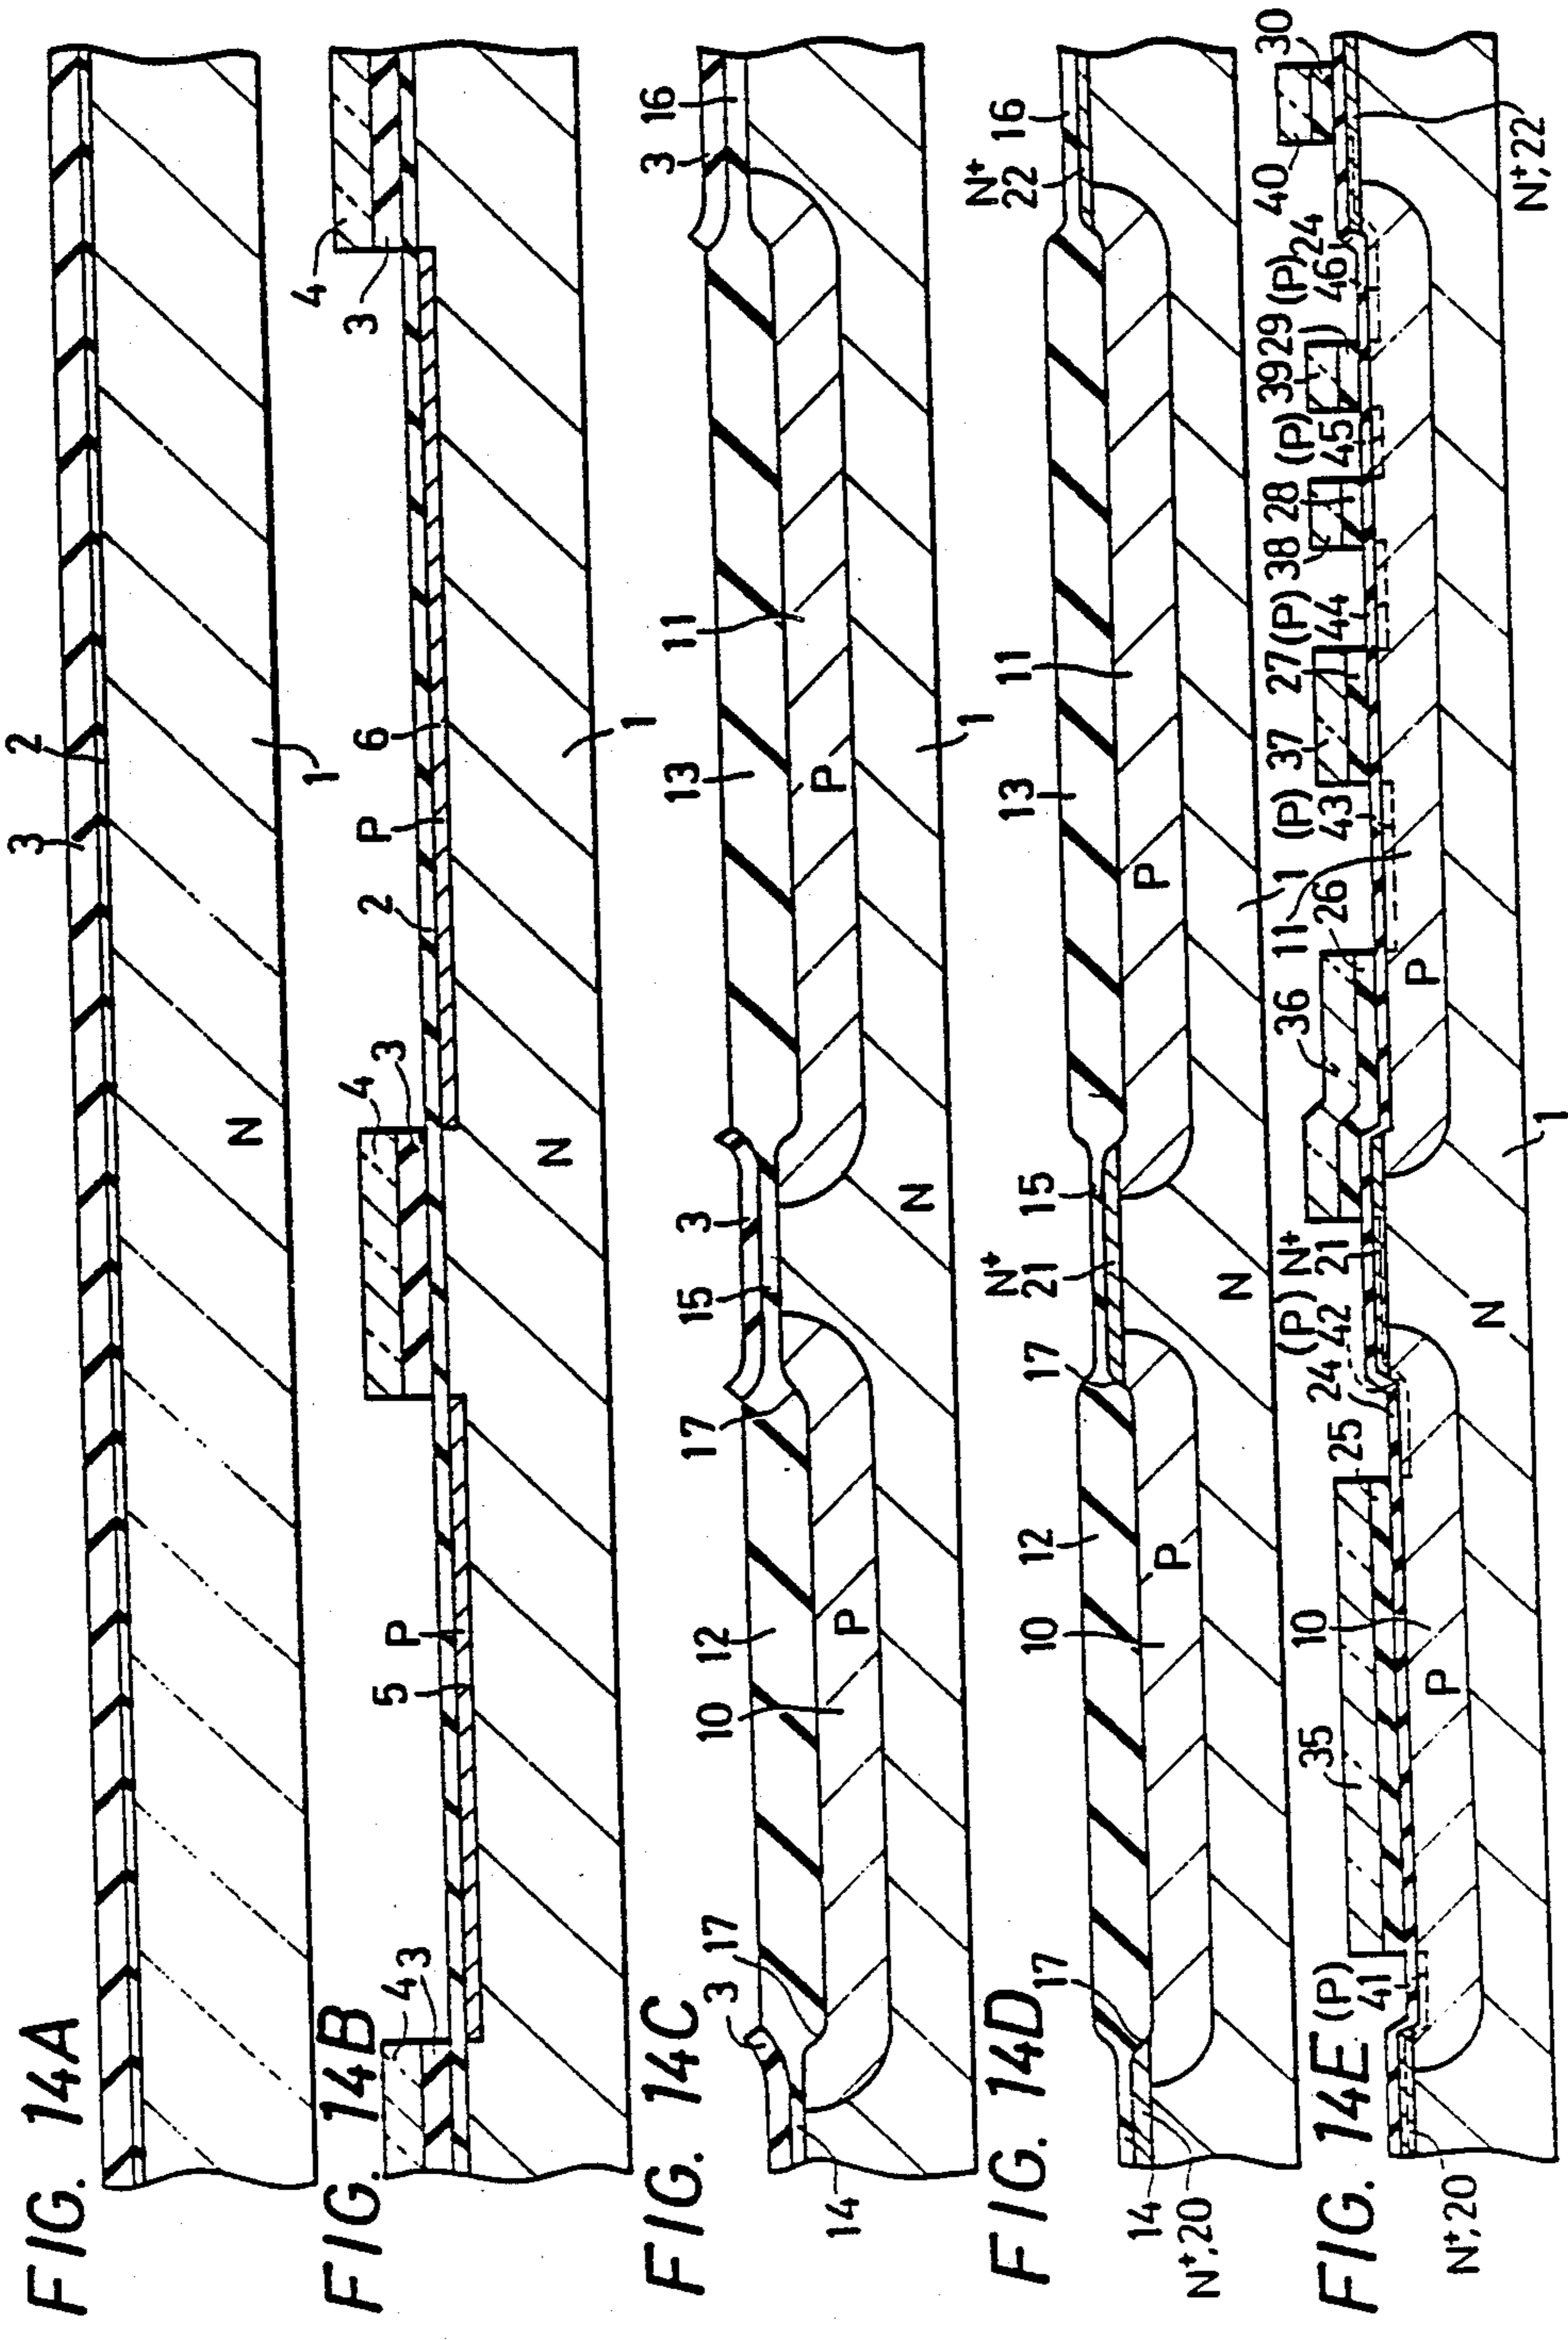 FIG. 14A
3
2
1
N
FIG. 14B
4
3
5
P
4
3
2
P
6
4
3
N
1
FIG. 14C
3
17
14
10
12
P
17
15
3
N
13
P
11
1
3
16
FIG. 14D
17
14
N⁺,20
10
12
P
17
N⁺
21
15
N
13
P
11
1
N⁺
22
16
FIG. 14E
(P)
41
N⁺,20
35
10
P
25
24
(P)
42
N⁺
21
N
36
26
11
P
1
(P)
43
37
27
(P)
44
38
28
(P)
45
39
29
(P)
46
24
40
30
N⁺,22